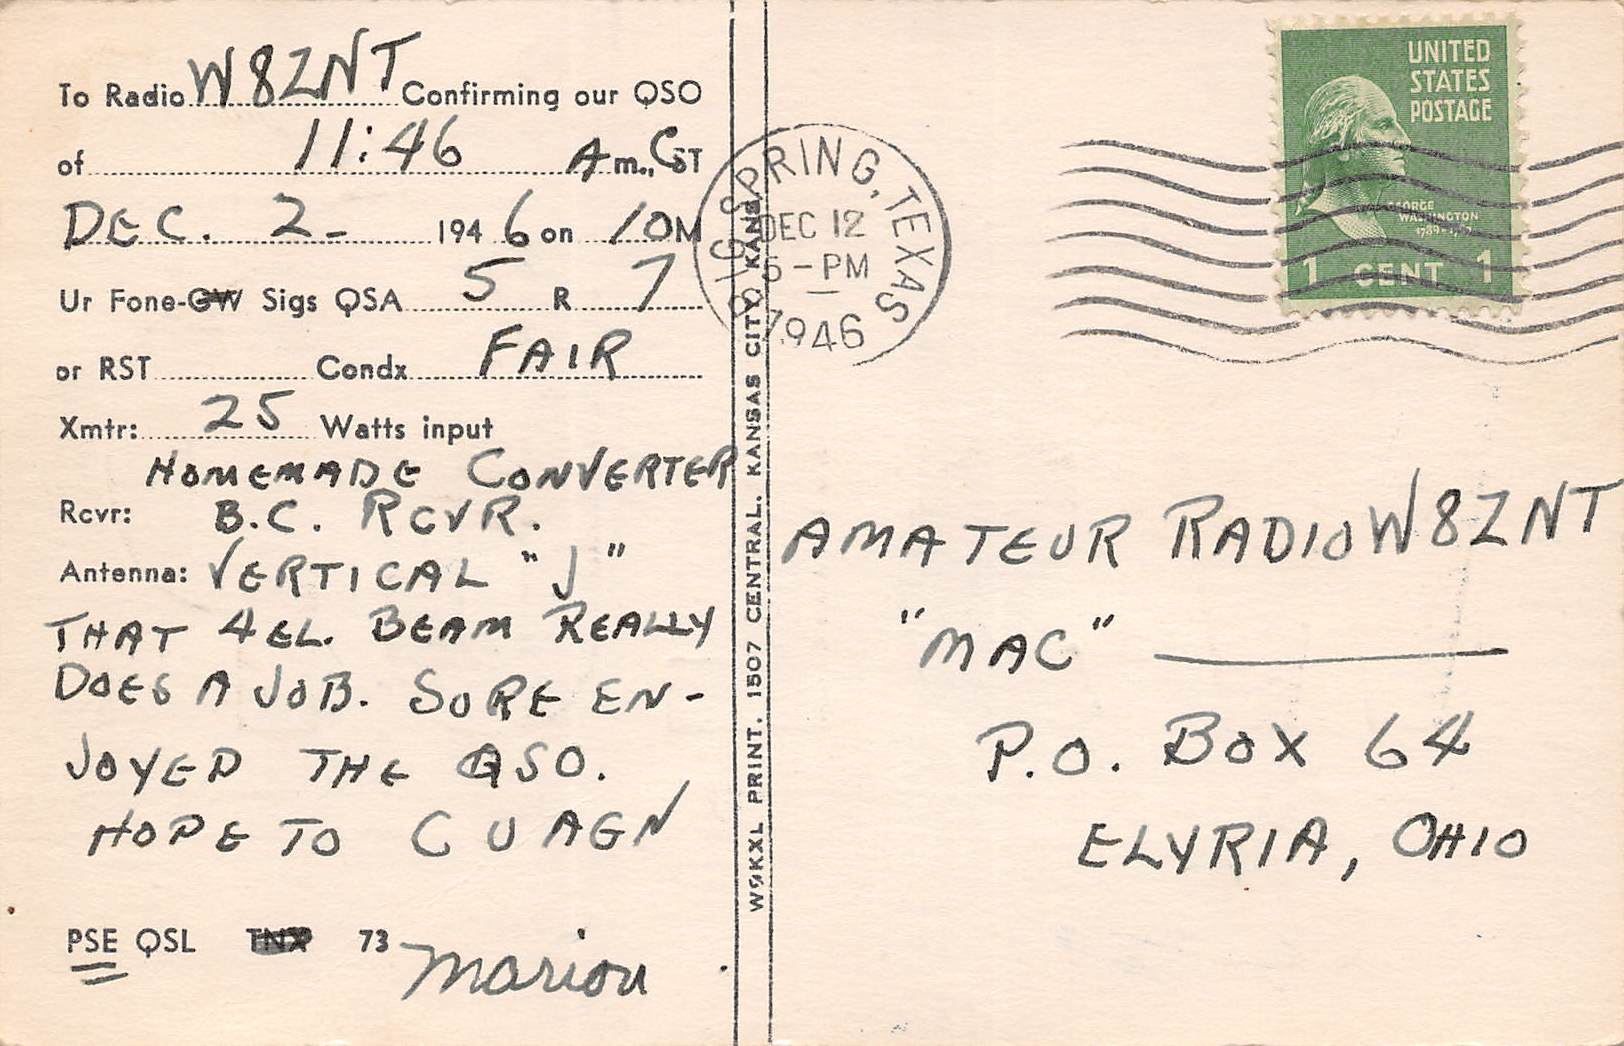 To Radio W8ZNT Confirming our QSO
of 11:46 A m., CST
DEC. 2- 1946 on 10M
Ur Fone-CW Sigs QSA 5 R 7
or RST Condx FAIR
Xmtr: 25 Watts input
HOMEMADE CONVERTER
Rcvr: B.C. RCVR.
Antenna: VERTICAL "J"
THAT 4EL. BEAM REALLY
DOES A JOB. SURE EN-
JOYED THE QSO.
HOPE TO C U AGN
PSE QSL TNX 73 Marion
WØKXL PRINT. 1507 CENTRAL. KANSAS CITY, KANS.
BIG SPRING, TEXAS
DEC 12
5-PM
1946
UNITED
STATES
POSTAGE
GEORGE
WASHINGTON
1789-1797
1 CENT 1
AMATEUR RADIO W8ZNT
"MAC"
P.O. BOX 64
ELYRIA, OHIO